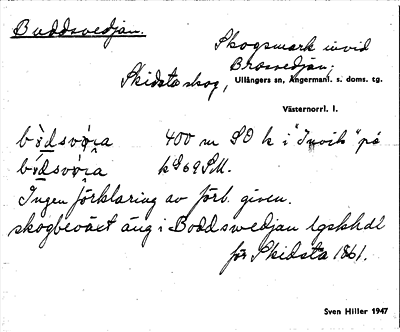 Boddsvedjan.
Skogsmark invid
Brossvedjan;
Skidsta skog, Ullångers sn, Ångermanl. s. doms. tg.
Västernorrl. l.
400 m SO k i "Invik" på
kbl 69 SM.
Ingen förklaring av förb. given.
skogbeväxt äng i Boddswedjan lgskhdl
för Skidsta 1861.
Sven Hiller 1947